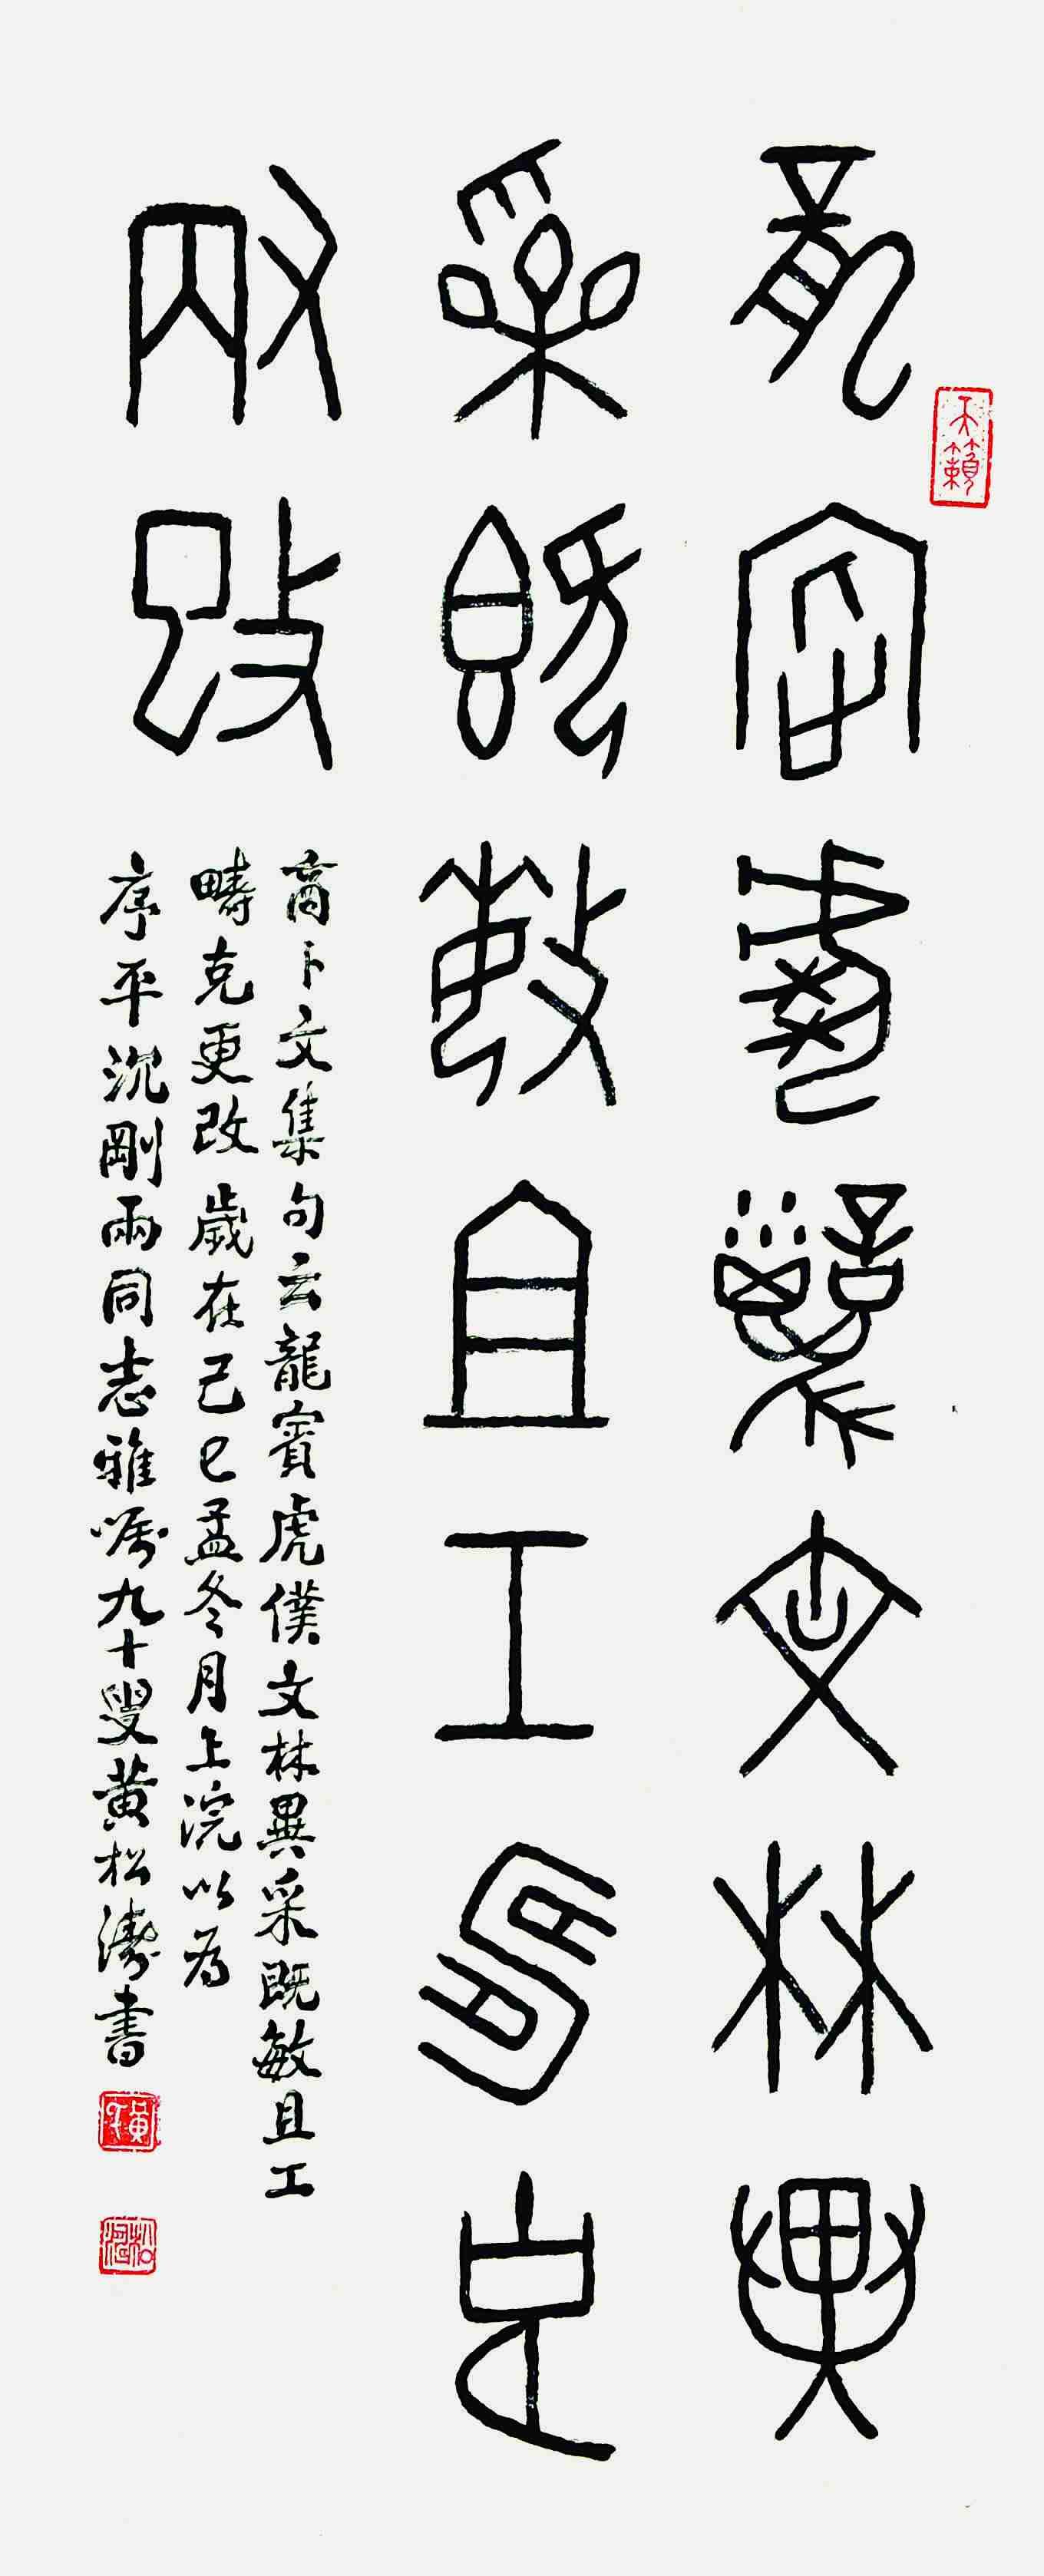 龍賓虎僕文林異
采既敏且工疇克
更改
商卜文集句云龍賓虎僕文林異采既敏且工
疇克更改 歲在己巳孟冬月上浣以為
序平沈剛兩同志雅嘱九十叟黄松濤書
天籟
黄
松濤